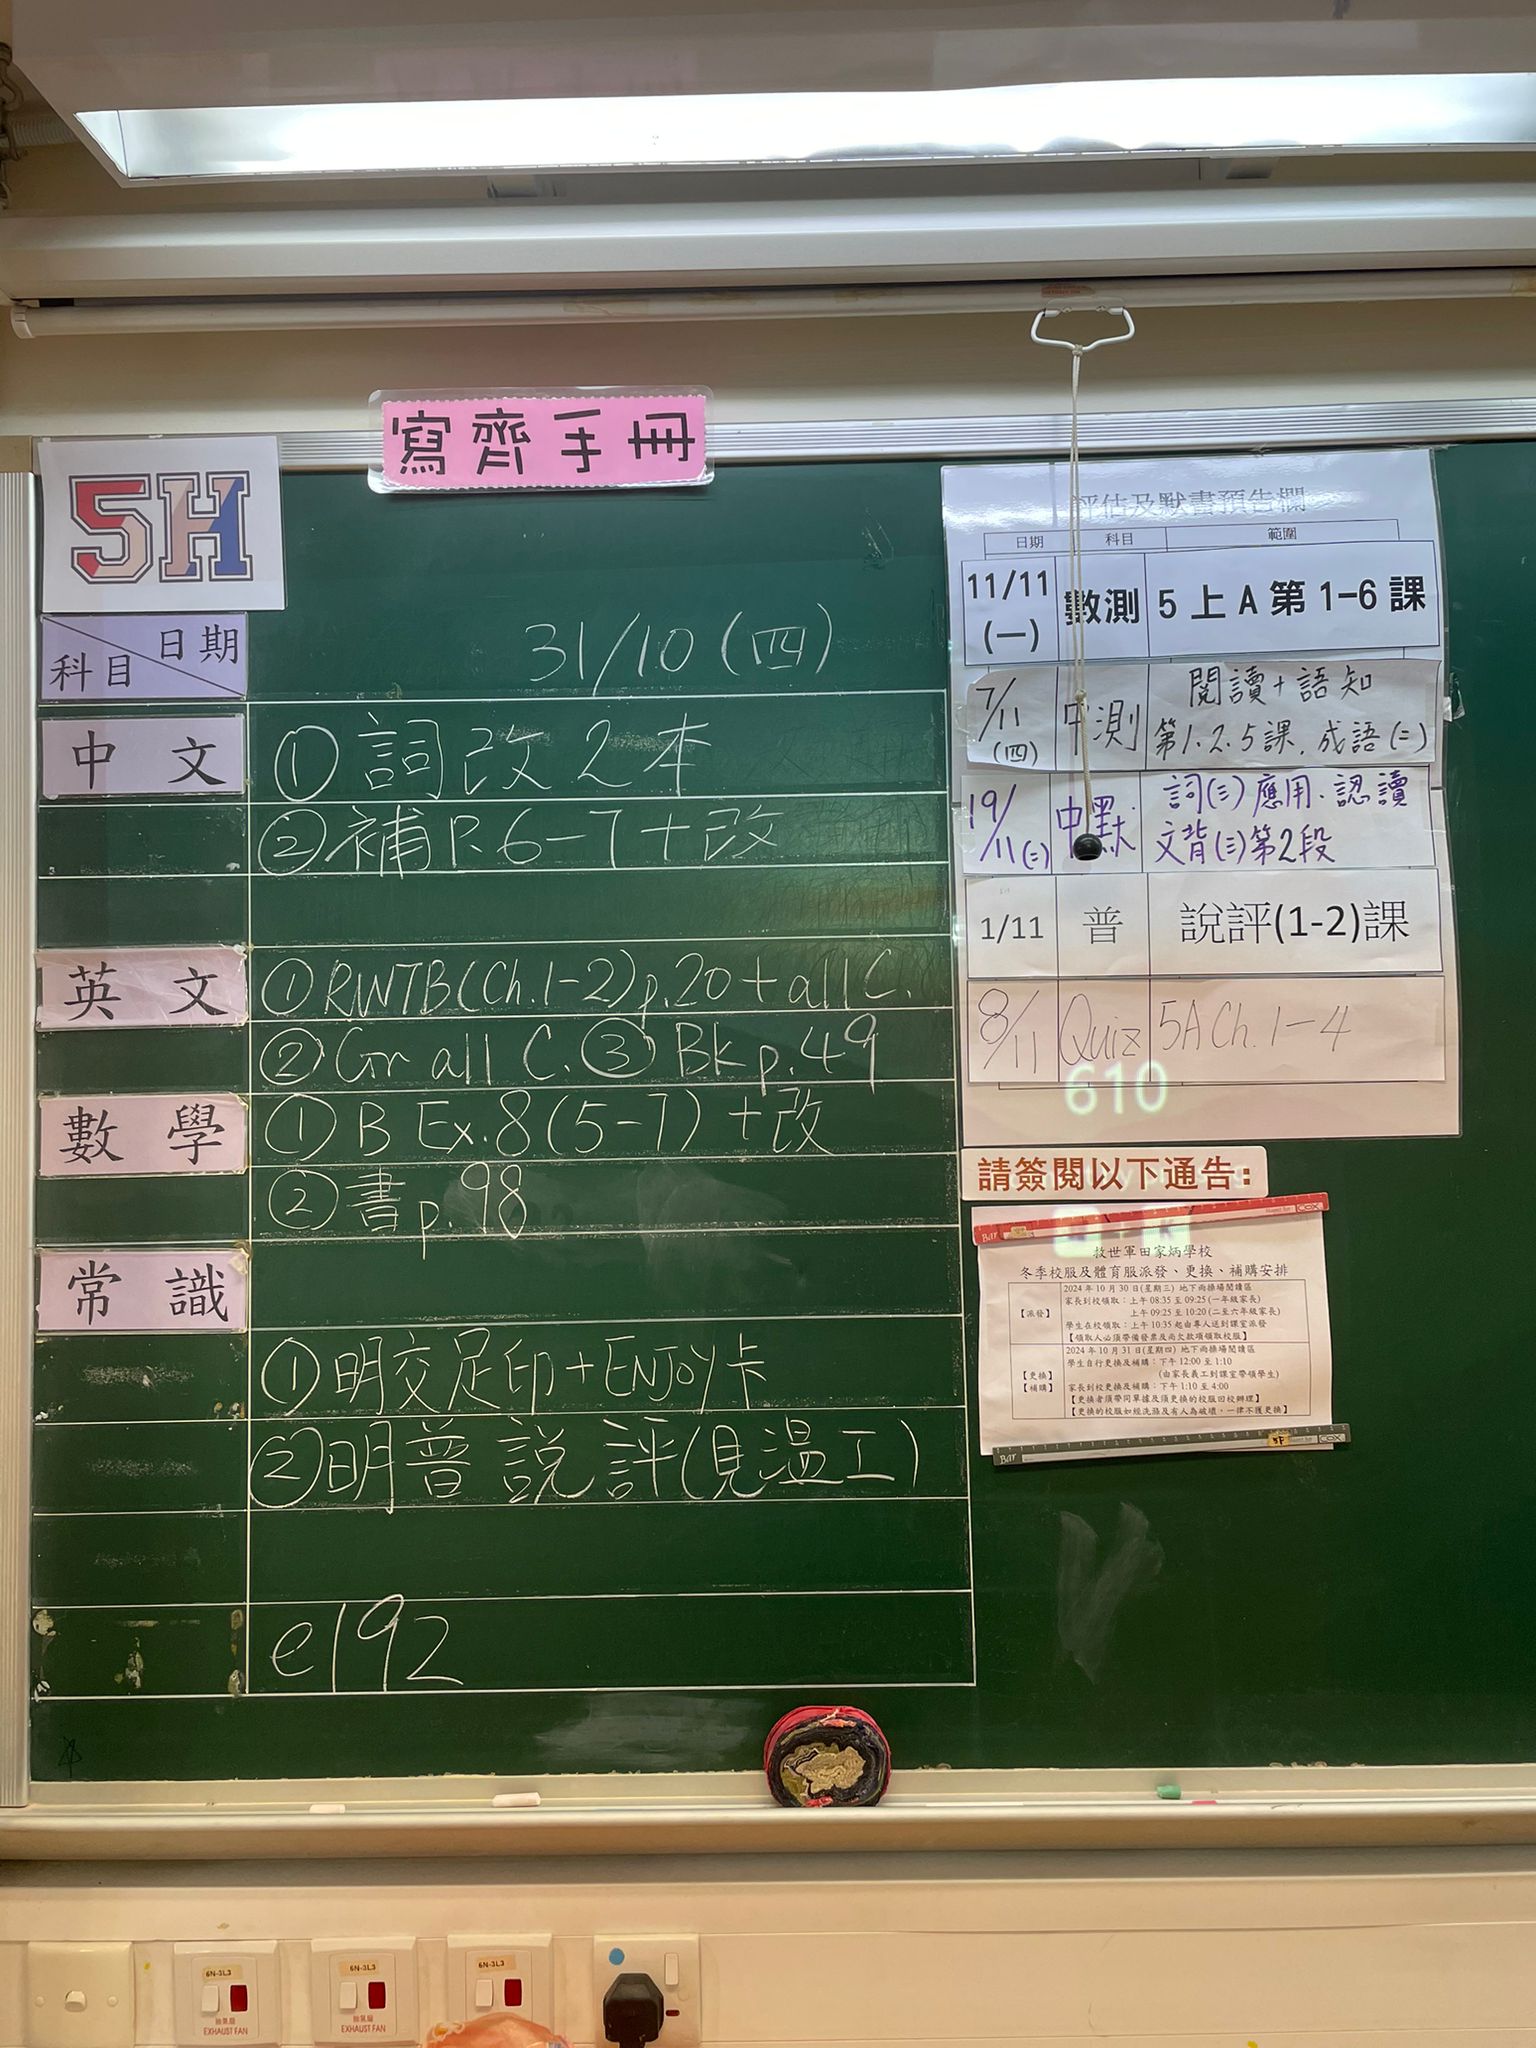 寫齊手冊
5H
日期
科目
31/10 (四)
中文
① 詞改2本
② 補P.6-7+改
英文
① RWTB(Ch.1-2)p.20+all C.
② Gr all C. ③ Bk p.49
數學
① B Ex.8(5-7)+改
② 書p.98
常識
① 明交足印+ENJOY卡
② 明普說評(見溫工)
e192
評估及默書預告欄
日期 科目 範圍
11/11 (一) 數測 5上A第1-6課
7/11 (四) 中測 閱讀+語知
第1.2.5課, 成語(二)
19/11 (二) 中默 詞(三)應用、認讀
文背(三)第2段
1/11 普 說評(1-2)課
8/11 Quiz 5A Ch.1-4
610
請簽閱以下通告:
救世軍田家炳學校
冬季校服及體育服派發、更換、補購安排
【派發】
2024年10月30日(星期三) 地下雨操場閱讀區
家長到校領取:上午08:35至09:25(一年級家長)
上午09:25至10:20(二至六年級家長)
學生在校領取:上午10:35起由專人送到課室派發
【領取人必須帶備發票及尚欠款項領取校服】
【更換】
【補購】
2024年10月31日(星期四) 地下雨操場閱讀區
學生自行更換及補購:下午12:00至1:10
(由家長義工到課室帶領學生)
家長到校更換及補購:下午1:10至4:00
【更換者須帶同單據及須更換的校服回校辦理】
【更換的校服如經洗滌及有人為破壞,一律不獲更換】
5F
6N-3L3
抽氣扇
EXHAUST FAN
6N-3L3
抽氣扇
EXHAUST FAN
6N-3L3